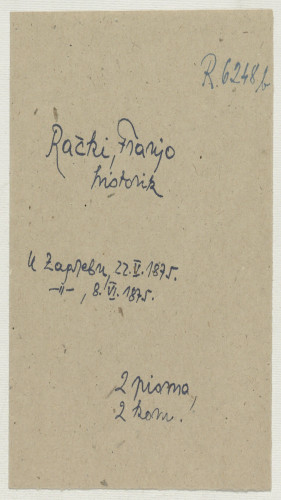 R. 6248 b
Rački, Franjo
historik
U Zagrebu, 22. V. 1875.
-||-, 8. VI. 1875.
2 pisma,
2 kom.